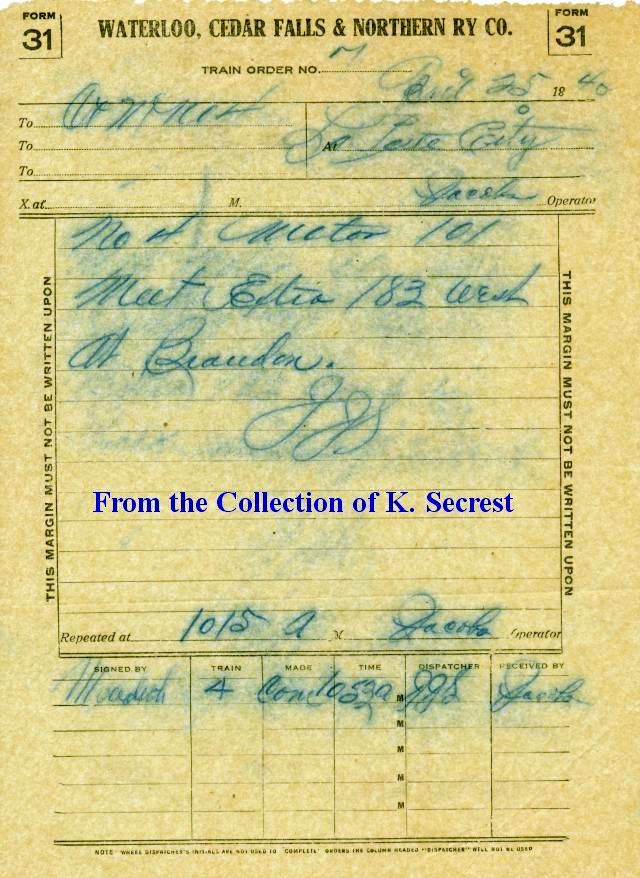 FORM
31
WATERLOO, CEDAR FALLS & NORTHERN RY CO.
FORM
31
TRAIN ORDER NO. 7
25 1840
To
To At La Porte City
To
X. at M. Jacobs Operator
No 4 Motor 101
Meet Extra 183 West
At Brandon.
JJS
THIS MARGIN MUST NOT BE WRITTEN UPON
THIS MARGIN MUST NOT BE WRITTEN UPON
From the Collection of K. Secrest
Repeated at 1015 A M Jacobs Operator
SIGNED BY TRAIN MADE TIME DISPATCHER RECEIVED BY
4 Com 1053 a M JJS Jacobs
M
M
M
M
NOTE WHERE DISPATCHER'S INITIALS ARE NOT USED TO "COMPLETE" ORDERS THE COLUMN HEADED "DISPATCHER" WILL NOT BE USED